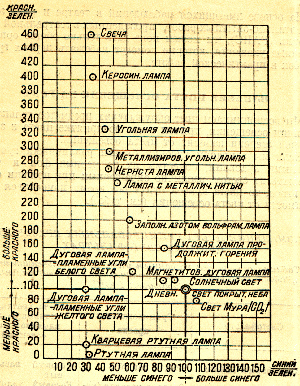 КРАСН.
ЗЕЛЕН.
460
440
420
400
380
360
340
320
300
280
260
240
220
200
180
160
140
120
100
80
60
40
20
0
БОЛЬШЕ
КРАСНОГО
МЕНЬШЕ
КРАСНОГО
СВЕЧА
КЕРОСИН. ЛАМПА
УГОЛЬНАЯ ЛАМПА
МЕТАЛЛИЗИРОВ. УГОЛЬН. ЛАМПА
НЕРНСТА ЛАМПА
ЛАМПА С МЕТАЛЛИЧ. НИТЬЮ
ЗАПОЛН. АЗОТОМ ВОЛЬФРАМ. ЛАМПА
ДУГОВАЯ ЛАМПА ПРО-
ДОЛЖИТ. ГОРЕНИЯ
ДУГОВАЯ ЛАМПА-
-ПЛАМЕННЫЕ УГЛИ
БЕЛОГО СВЕТА
МАГНЕТИТОВ. ДУГОВАЯ ЛАМПА
СОЛНЕЧНЫЙ СВЕТ
ДНЕВН. СВЕТ ПОКРЫТ. НЕБА
СВЕТ МУРА (CO2)
ДУГОВАЯ ЛАМПА-
-ПЛАМЕННЫЕ УГЛИ
ЖЕЛТОГО СВЕТА
КВАРЦЕВАЯ РТУТНАЯ ЛАМПА
РТУТНАЯ ЛАМПА
10 20 30 40 50 60 70 80 90 100 110 120 130 140 150
СИНИЙ
ЗЕЛЕН.
МЕНЬШЕ СИНЕГО
БОЛЬШЕ СИНЕГО